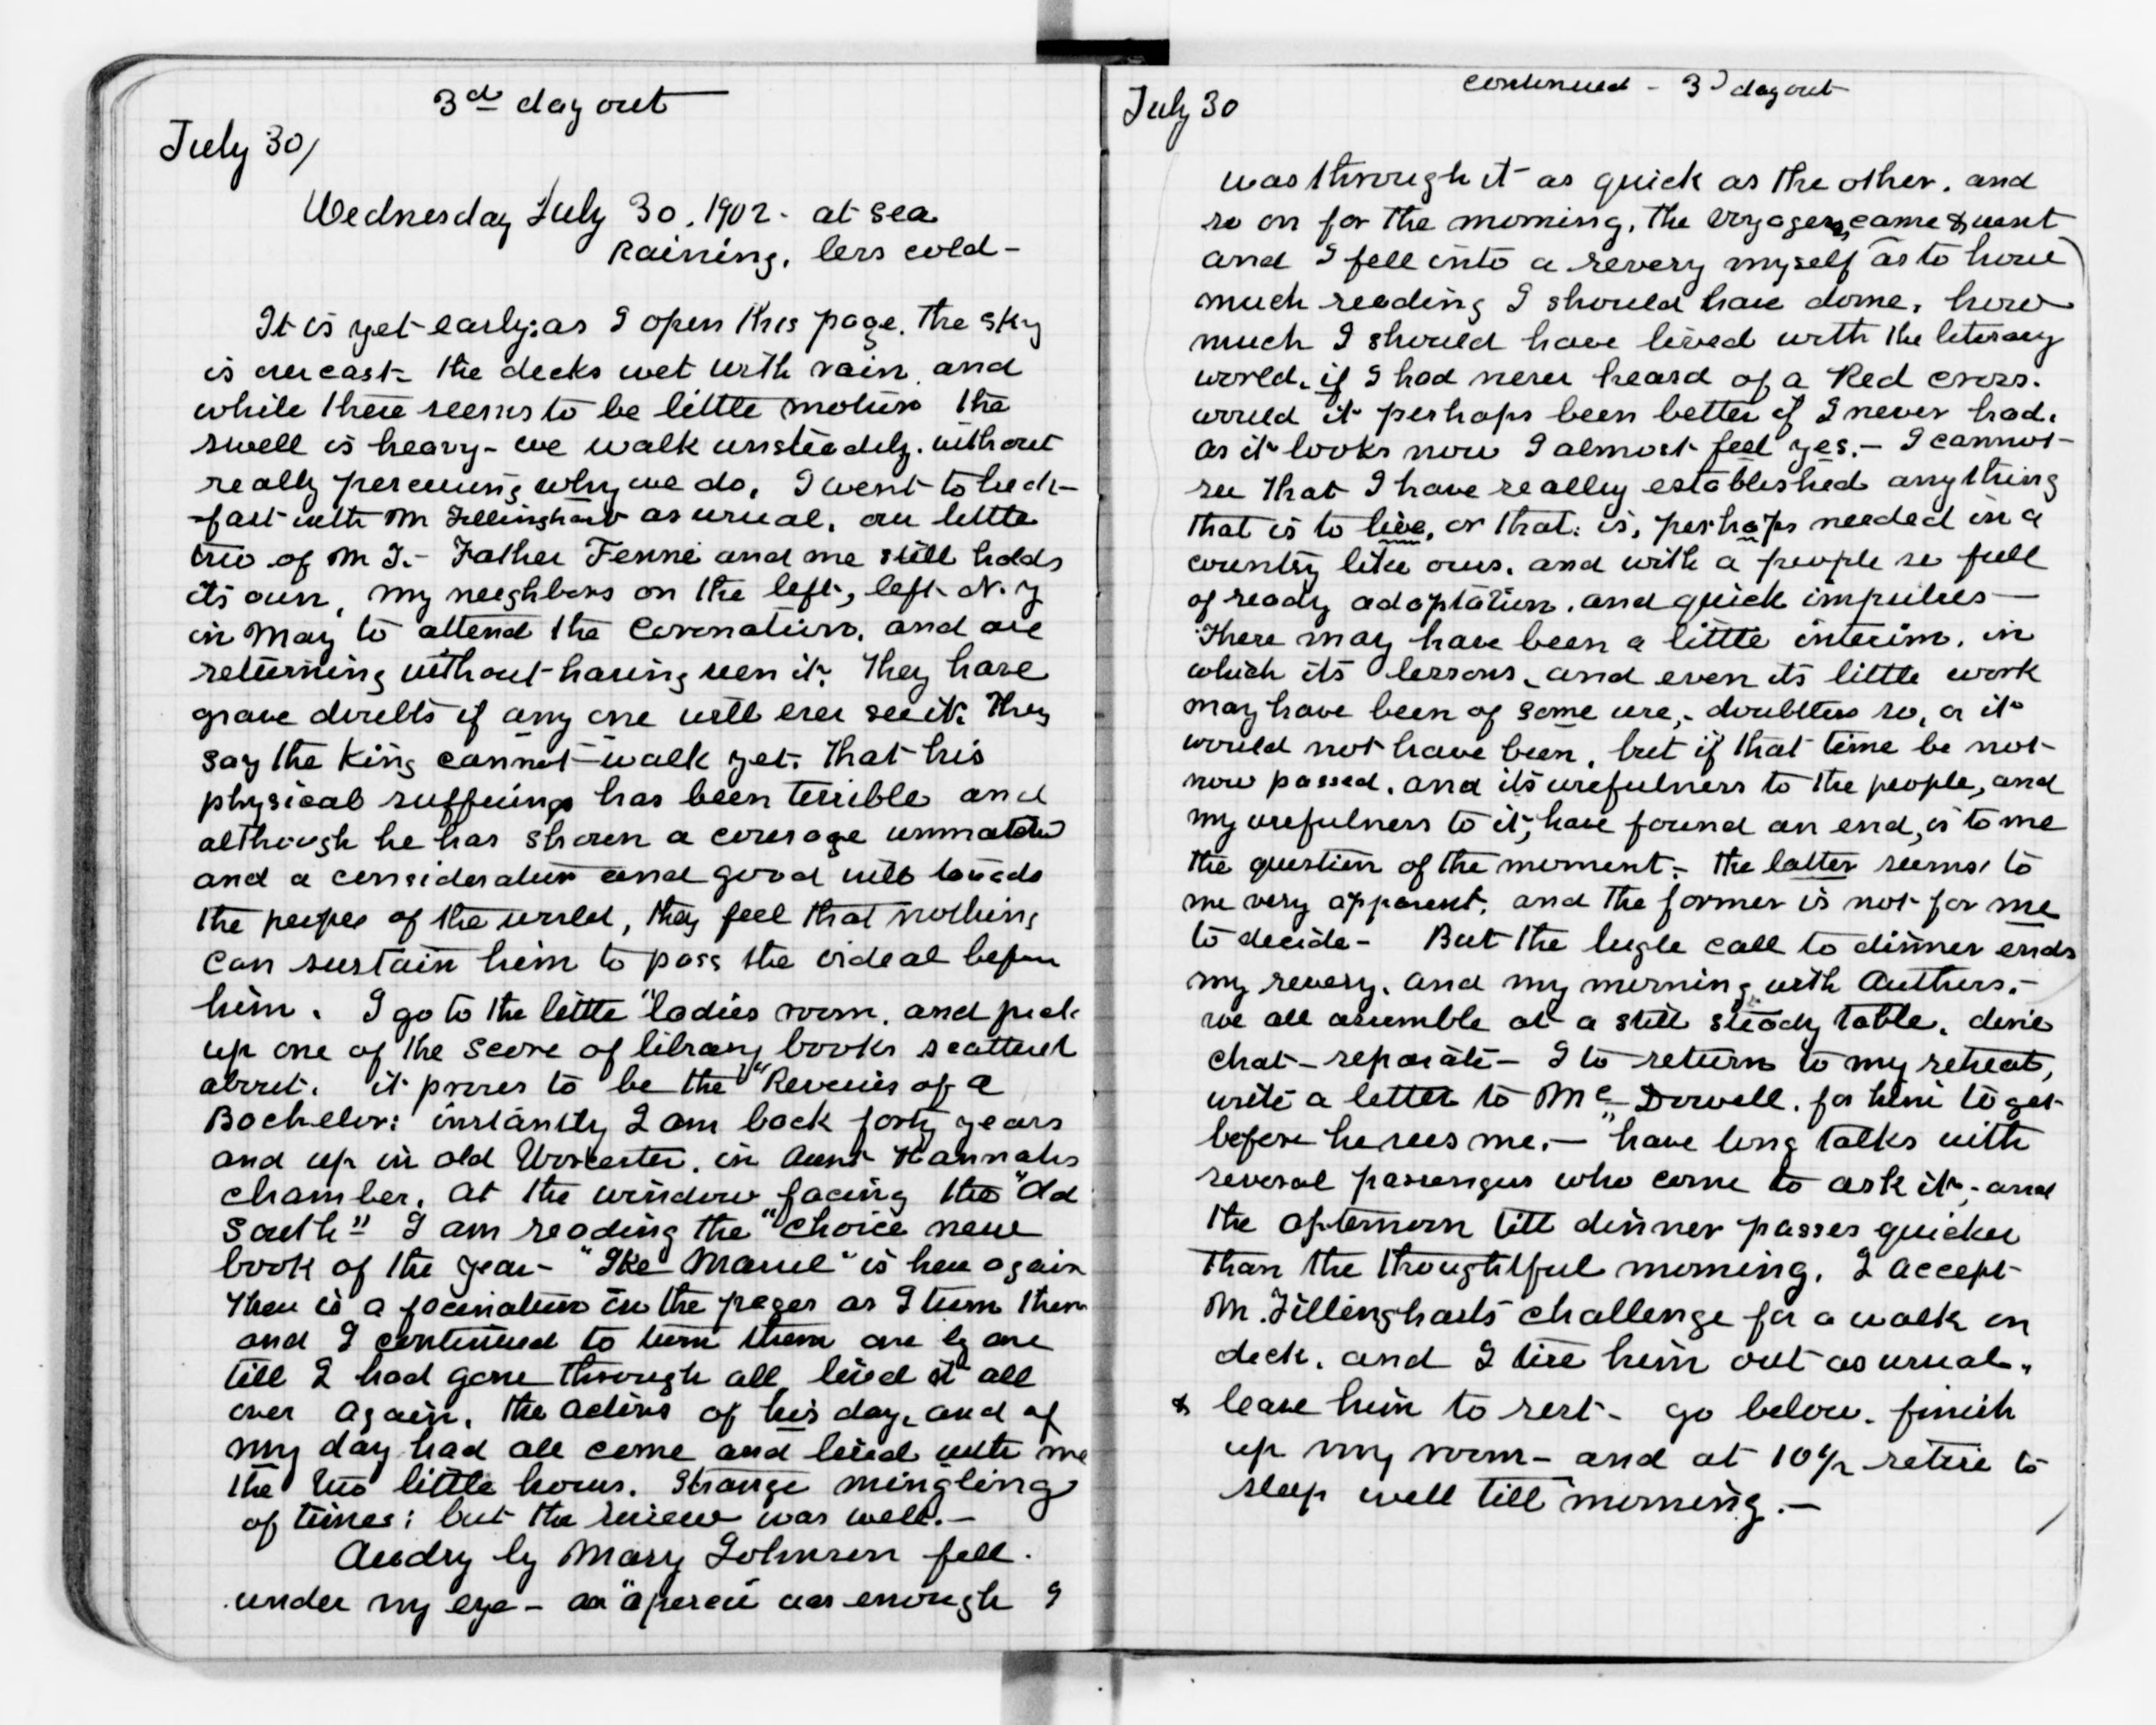 3d day out
July 30/
Wednesday July 30, 1902 - at sea
Raining, less cold -
It is yet early; as I open this page. The sky
is overcast - the decks wet with rain, and
while there seems to be little motion the
swell is heavy - we walk unsteadily. without
really perceiving why we do, I went to
-fast with Mr Tillinghast as usual, our little
trio of Mr T. - Father Fenne and me still holds
its own, my neighbors on the left, left N. Y
in May to attend the Coronation, and are
returning without having seen it. They have
grave doubts if any one will ever see it. They
say the King cannot walk yet. That his
physical sufferings has been terrible and
although he has shown a courage
and a consideration and good will towards
the peoples of the world, they feel that nothing
can sustain him to pass the ordeal before
him. I go to the little "ladies room, and pick
up one of the score of library books scattered
about. it proves to be the "Reveries of a
Bachelor: instantly I am back forty years
and up in old Worcester, in Aunt Hannahs
chamber, at the window facing the "Old
South" I am reading the "choice new
book of the year - "Ike Marvel" is here again
There is a facination in the pages as I turn them
and I continued to turn them one by one
till I had gone through all, lived it all
over again, the actors of his day, and of
my day had all come and lived with me
the two little hours. Strange mingling
of times; but the review was well. -
Audry by Mary Johnson fell.
under my eye - an "apercu was enough I
continued - 3d day out
July 30
was through it as quick as the other, and
so on for the morning, the Voyagers, came & went
and I fell into a revery myself as to how
much reading I should have done, how
much I should have lived with the literary
world, if I had never heard of a Red cross.
would it perhaps been better if I never had.
as it looks now I almost feel yes. - I cannot
see that I have really established anything
that is to live, or that is, perhaps needed in a
country like ours, and with a people so full
of ready adaptation, and quick impulses -
There may have been a little interim, in
which its lessons, and even its little work
may have been of some use, - doubtless so, or it
would not have been, but if that time be not
now passed, and its usefulness to the people, and
my usefulness to it, have found an end, is to me
the question of the moment. - the latter seems to
me very apparent, and the former is not for me
to decide - But the bugle call to dinner ends
my revery, and my morning with Authors. -
we all assemble at a still steady table, dine
chat - separate - I to return to my retreat,
write a letter to Mc Dowell, for him to get
before he sees me. - have long talks with
several passengers who come to ask it, - and
the afternoon till dinner passes quicker
than the thoughtful morning. I accept
Mr. Tillinghasts challenge for a walk on
deck, and I tire him out as usual,
& leave him to rest - go below, finish
up my room - and at 10½ retire to
sleep well till morning. -